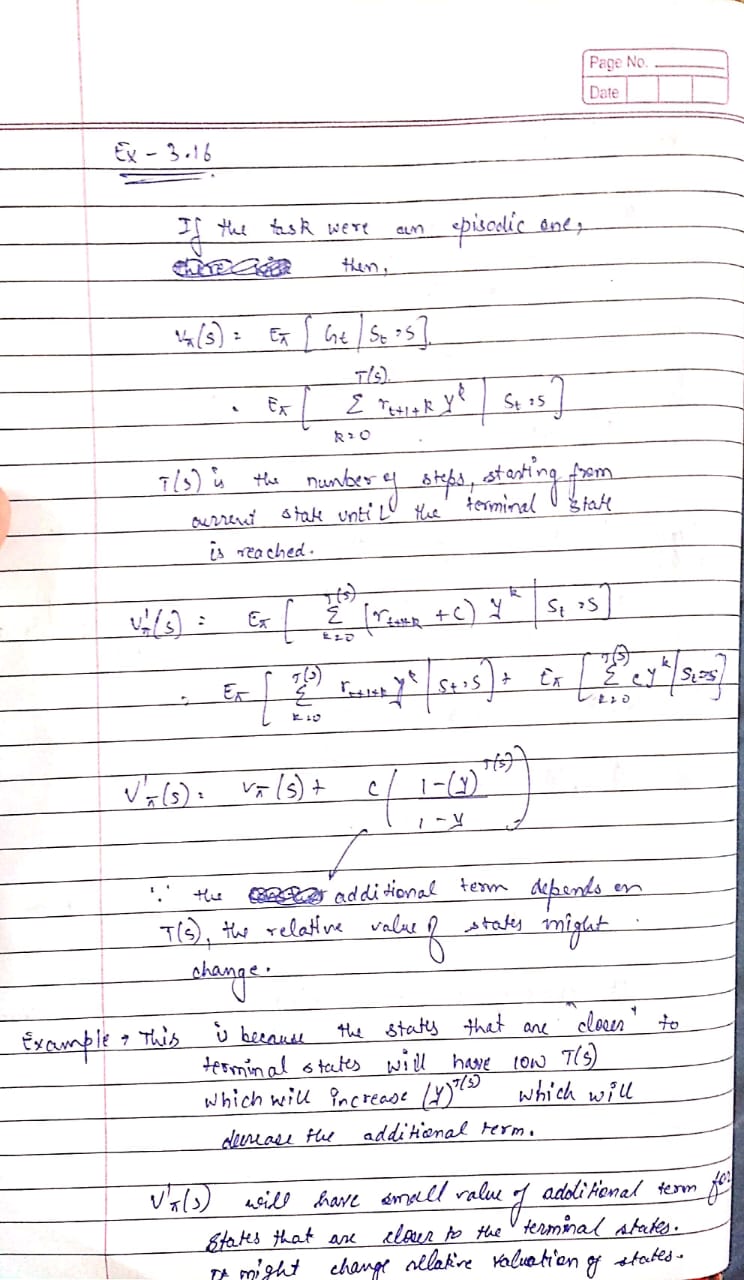 Page No.
Date
Ex - 3.16
If the task were an episodic one,
then,
vπ(s) = Eπ [ Gt | St = s ]
= Eπ [ T(s) Σ k=0 rt+1+k γ^k | St = s ]
T(s) is the number of steps, starting from
current state until the terminal state
is reached.
v'π(s) = Eπ [ T(s) Σ k=0 (rt+1+k + c) γ^k | St = s ]
= Eπ [ T(s) Σ k=0 rt+1+k γ^k | St = s ] + Eπ [ T(s) Σ k=0 c γ^k | St = s ]
v'π(s) = vπ(s) + c ( 1 - (γ)^T(s) / 1 - γ )
∵ the additional term depends on
T(s), the relative value of states might
change.
Example → This is because the states that are "closer" to
terminal states will have low T(s)
which will increase (γ)^T(s) which will
decrease the additional term.
v'π(s) will have small value of additional term for
states that are closer to the terminal states.
It might change relative valuation of states.